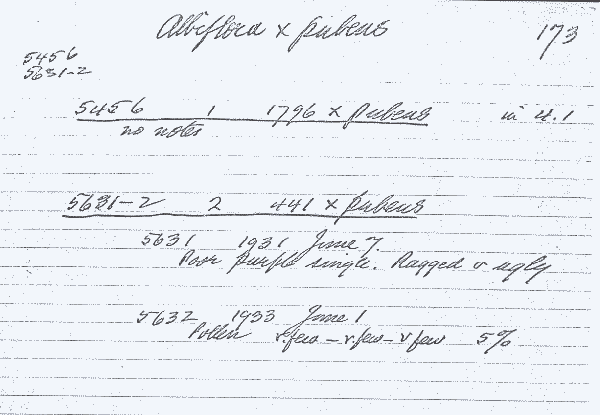 Albiflora x pubens
173
5456
5631-2
5456 1 1796 x pubens in 4.1
no notes
5631-2 2 441 x pubens
5631 1931 June 7.
Poor purple single. Ragged & ugly
5632 1933 June 1
Pollen v.few - v.few - v few 5%